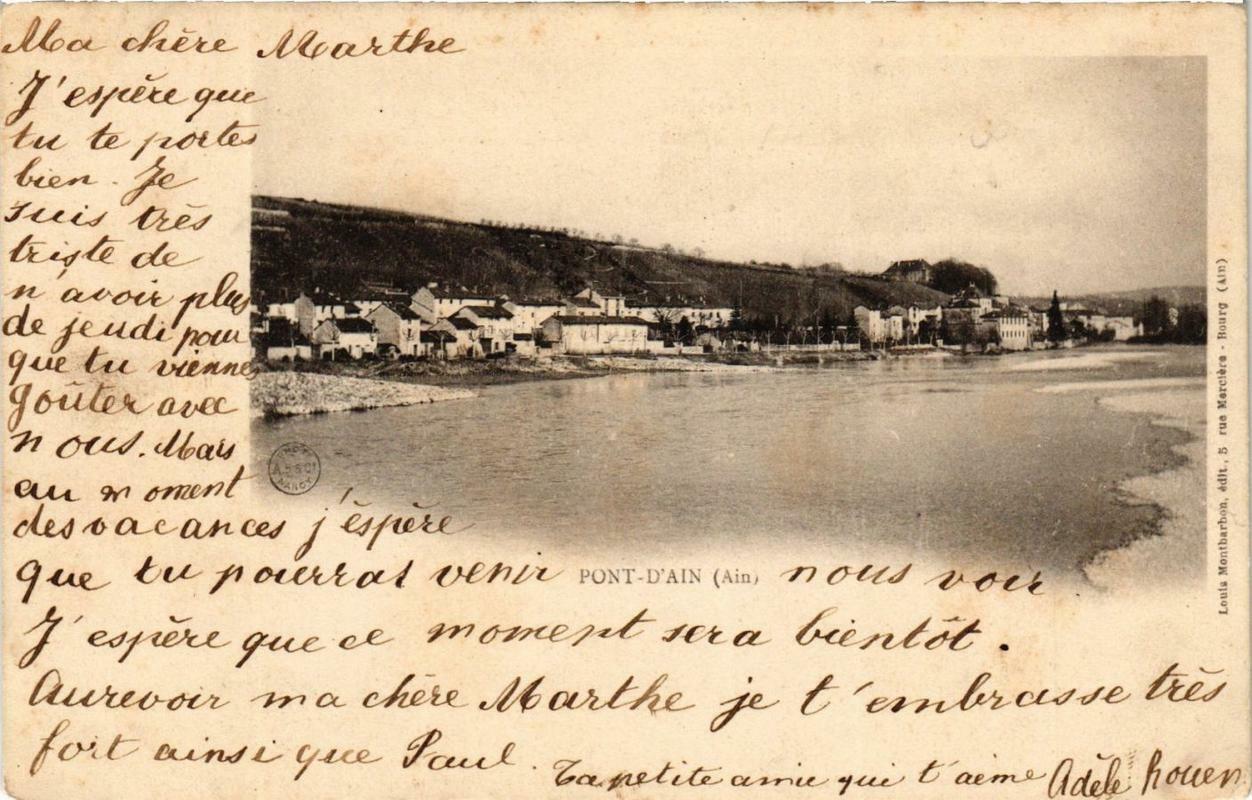 Ma chère Marthe
J'espère que
tu te portes
bien. Je
suis très
triste de
n'avoir plus
de jeudi pour
que tu viennes
goûter avec
nous. Mais
au moment
des vacances j'éspère
que tu pourras venir PONT-D'AIN (Ain) nous voir
J'espère que ce moment sera bientôt.
Aurevoir ma chère Marthe je t'embrasse très
fort ainsi que Paul.
Ta petite amie qui t'aime Adèle
Louis Montbarbon, édit., 5 rue Mercière - Bourg (Ain)
NANCY